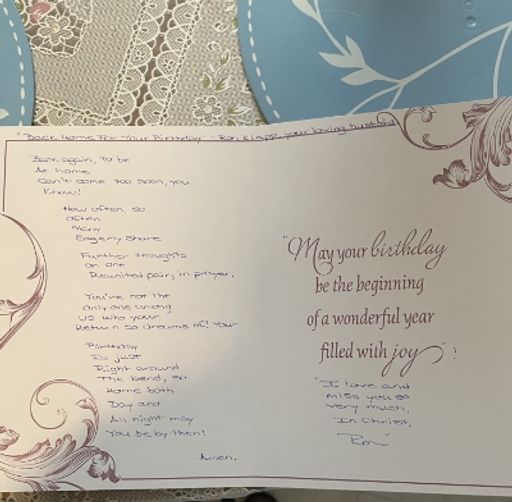 "Back Home For Your Birthday" - Ron your loving husband
Back again, to be
At home
Can't come too soon, you
Know!
How often, so
Often
Mary
Eagerly share
Further thoughts
on our
Reunited pair, in prayer.
You're not the
Only one among
Us who your
Return so dreams of! Your
Birthday
Is just
Right around
The bend, so
Home both
Day and
All night may
You be by then!
Amen.
"May your birthday
be the beginning
of a wonderful year
filled with joy" !
"I love and
miss you so
very much.
In Christ,
Ron"